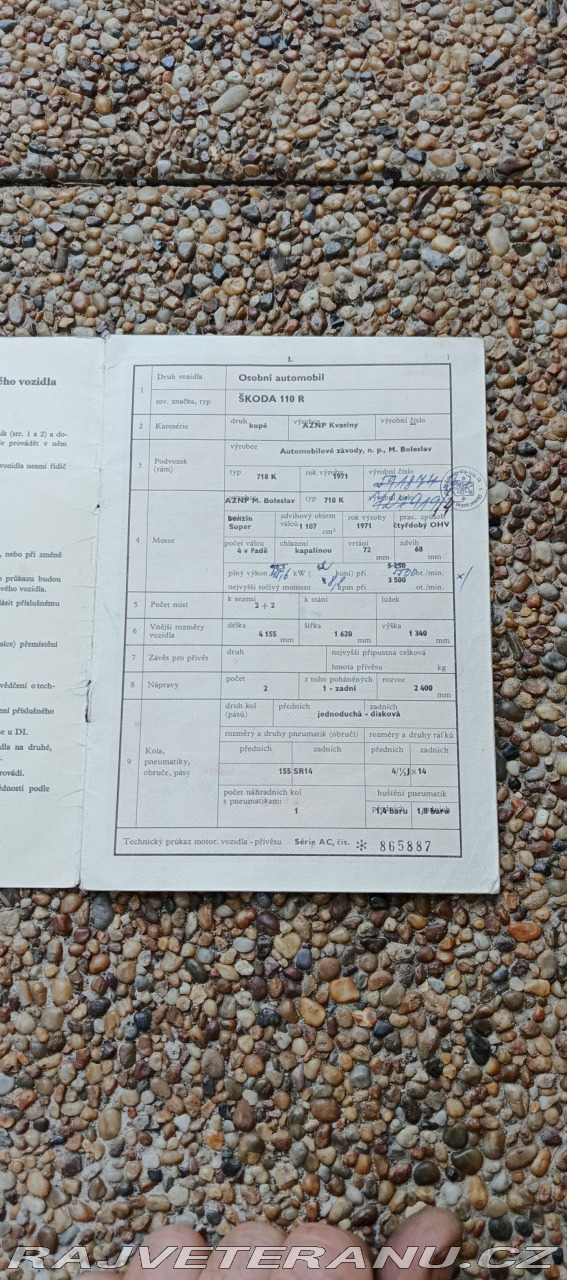 ého vozidla
ík (str. 1 a 2) a do-
e provádět v něm
vozidla nesmí řidič
, nebo při změně
průkazu budou
vého vozidla.
lásit příslušnému
sice) přemístění
vědčení o tech-
ení příslušného
e u DI.
dla na druhé,
rovádí.
ědnosti podle
I. 1
1 Druh vozidla Osobní automobil
tov. značka, typ ŠKODA 110 R
2 Karosérie druh kupé výrobce AZNP Kvasiny výrobní číslo
3 Podvozek (rám) výrobce Automobilové závody, n. p., M. Boleslav
typ 718 K rok výroby 1971 výrobní číslo
4 Motor výrobce AZNP M. Boleslav typ 718 K výrobní číslo
benzin Super zdvihový objem válců 1 107 cm³ rok výroby 1971 prac. způsob čtyřdobý OHV
počet válců 4 v řadě chlazení kapalinou vrtání 72 mm zdvih 68 mm
plný výkon kW ( koní) při 5 250 ot./min.
nejvyšší točivý moment kpm při 3 500 ot./min. x/
5 Počet míst k sezení 2 + 2 k stání lůžek
6 Vnější rozměry vozidla délka 4 155 mm šířka 1 620 mm výška 1 340 mm
7 Závěs pro přívěs druh nejvyšší přípustná celková hmota přívěsu kg
8 Nápravy počet 2 z toho poháněných 1 - zadní rozvor 2 400 mm
9 Kola, pneumatiky, obruče, pásy druh kol (pásů) předních zadních jednoduchá - disková
rozměry a druhy pneumatik (obručí) rozměry a druhy ráfků
předních zadních předních zadních
155 SR14 4/½J×14
počet náhradních kol s pneumatikami 1 huštění pneumatik
předních 1,4 baru zadních 1,8 baru
Technický průkaz motor. vozidla - přívěsu Série AC, čís. ✻ 865887
RAJVETERANU.CZ